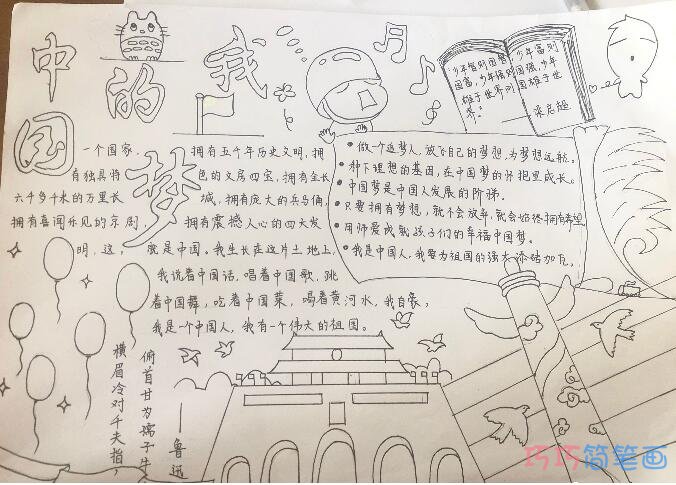 中国的梦 我
少年智则国智，少年富则
国富，少年强则国强，少年
雄于世界则国雄于世
界。
——梁启超
一个国家，拥有五千年历史文明，拥
有独具特色的文房四宝，拥有全长
六千多千米的万里长城，拥有庞大的兵马俑，
拥有喜闻乐见的京剧，拥有震撼人心的四大发
明，这，就是中国。我生长在这片土地上，
我说着中国话，唱着中国歌，跳
着中国舞，吃着中国菜，喝着黄河水，我自豪，
我是一个中国人，我有一个伟大的祖国。
做一个追梦人，放飞自己的梦想，为梦想远航。
种下理想的基因，在中国梦的怀抱里成长。
中国梦是中国人发展的阶梯。
只要拥有梦想，就不会放弃，就会始终拥有希望
用师爱成就孩子们的幸福中国梦。
我是中国人，我要为祖国的强大添砖加瓦。
横眉冷对千夫指，
俯首甘为孺子牛
——鲁迅
巧巧简笔画